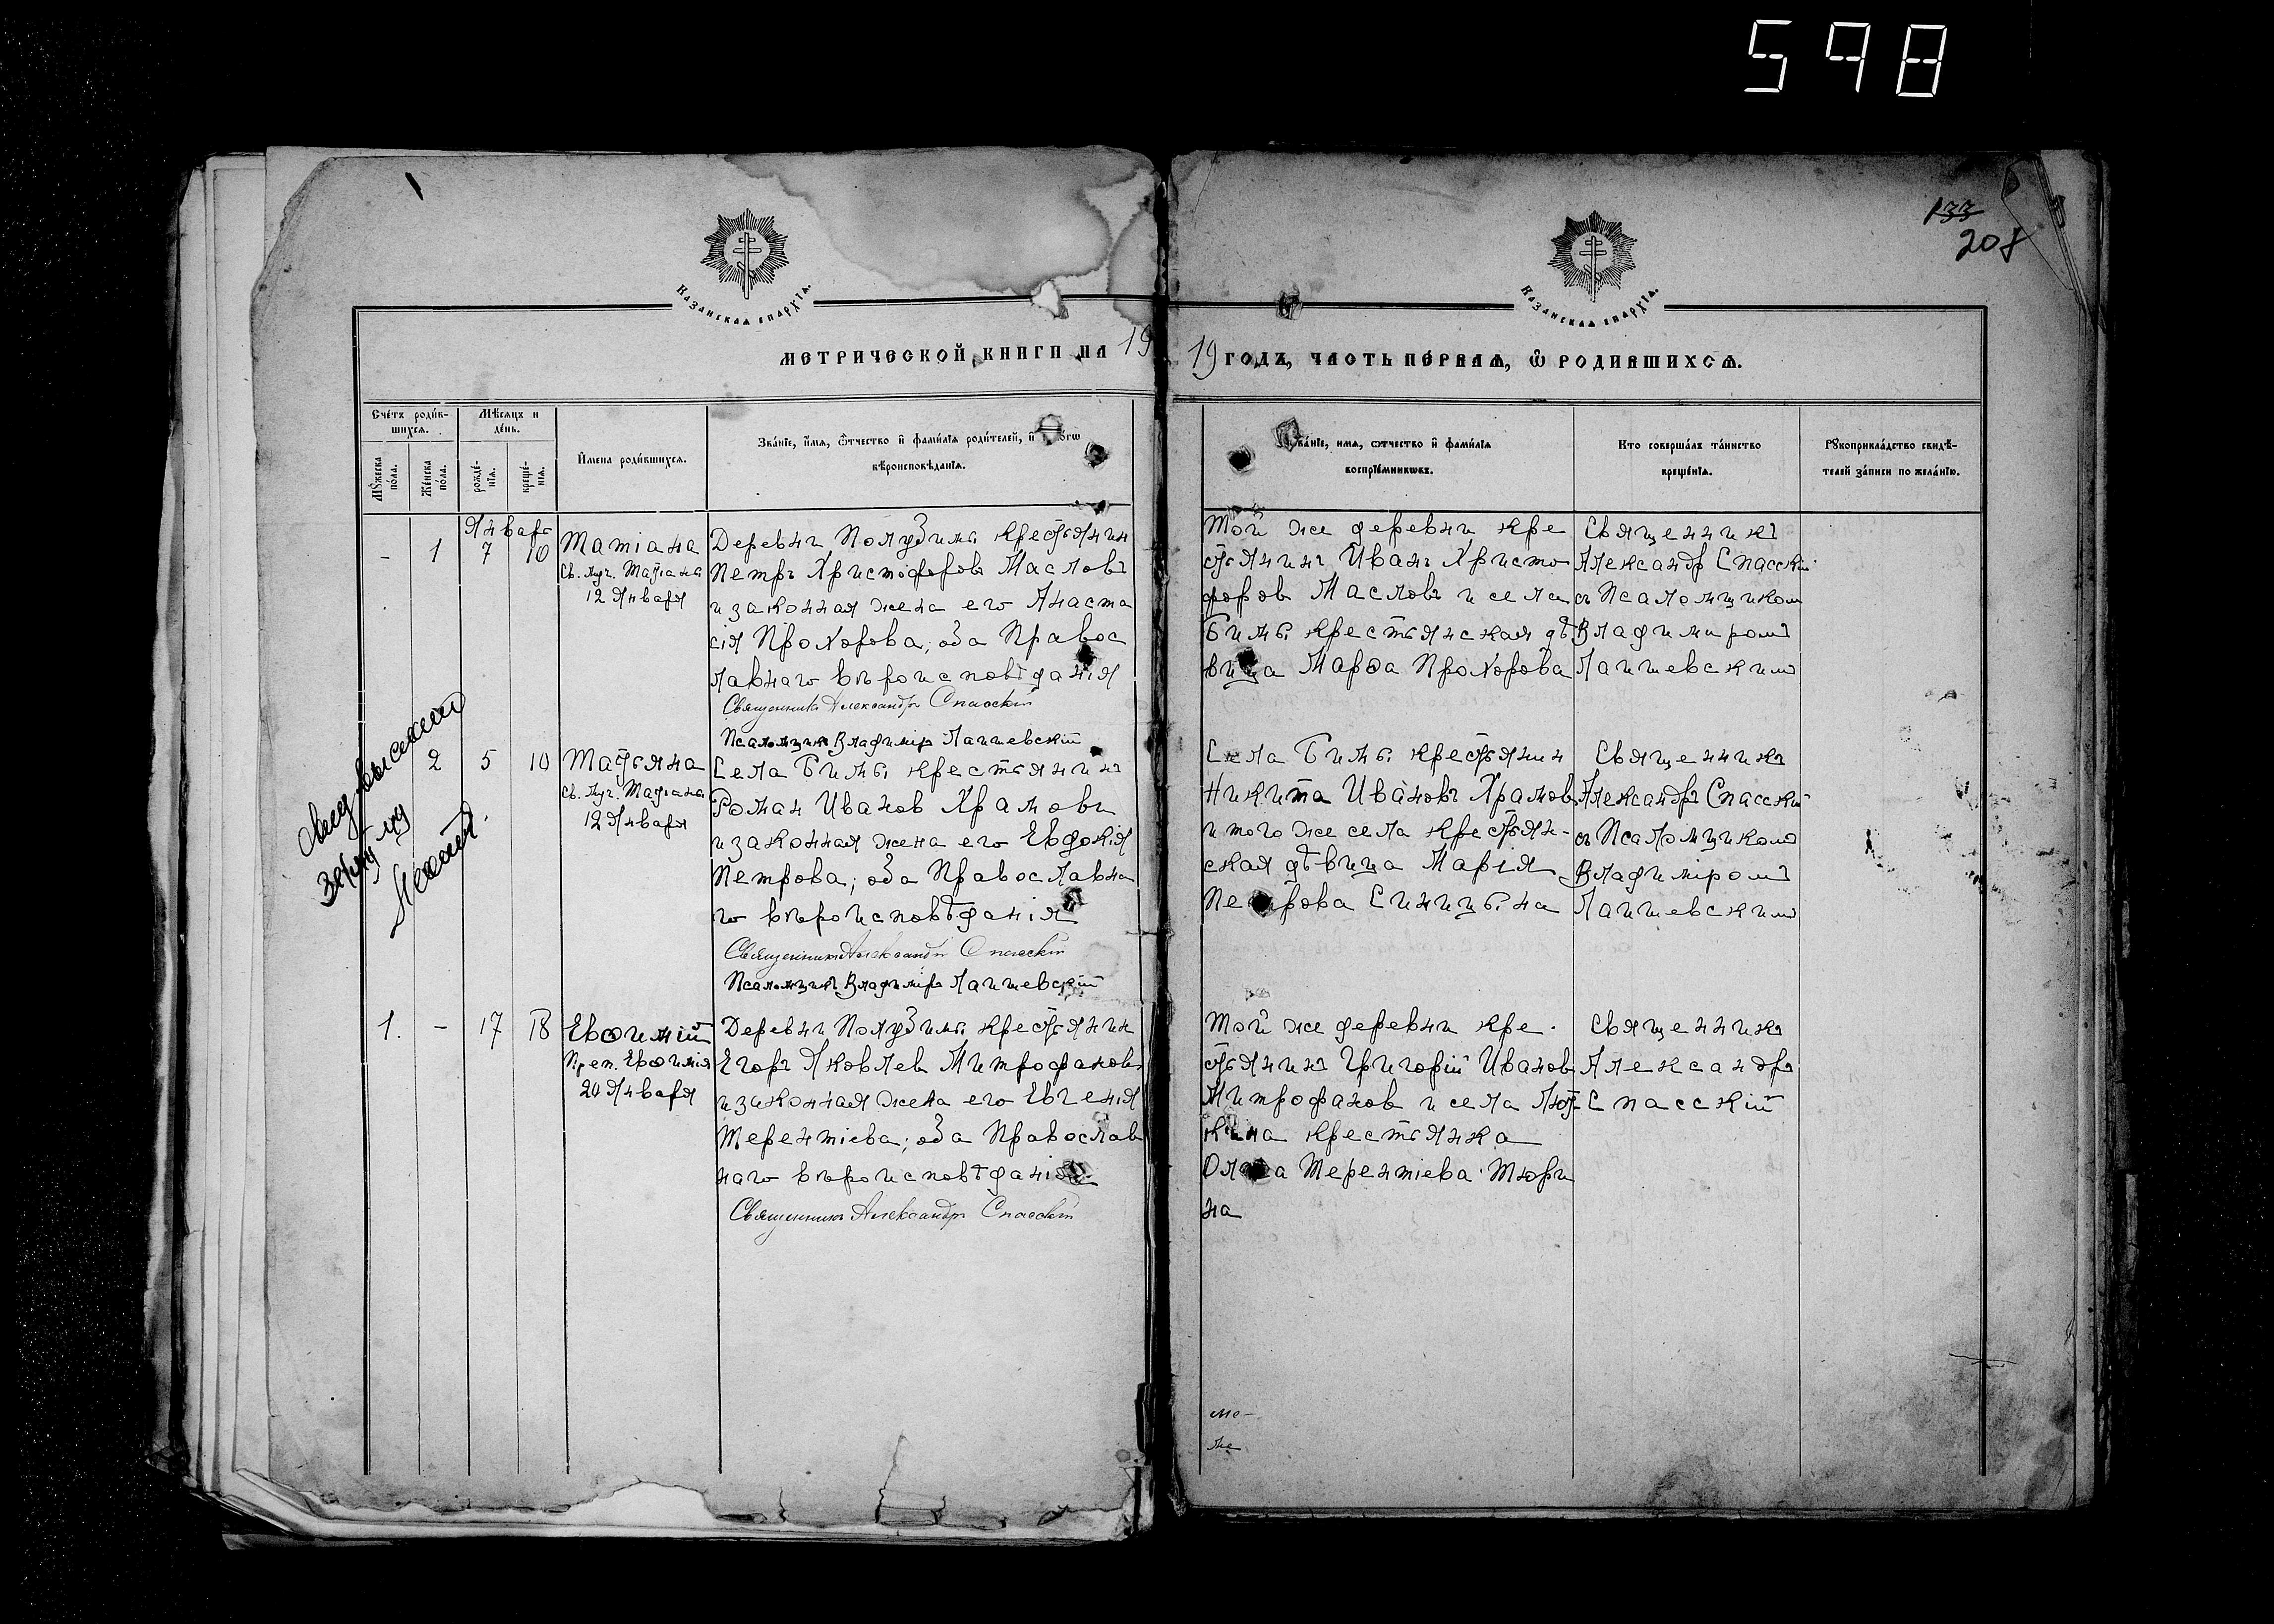 598
133
208
Казанская епархїа.
Казанская епархїа.
МЕТРИЧЕСКОЙ КНИГИ НА 19
19 ГОДЪ, ЧАСТЬ ПЕРВАЯ, Ѿ РОДИВШИХСЯ.
Счётъ роди́в-
шихся.
Мѣ́сяцъ и
де́нь.
Му́жеска
по́ла.
Же́нска
по́ла.
рожде́-
нїя.
креще́-
нїя.
И҆мена роди́вшихся.
Зва́нїе, и҆́мя, ѻ҆́тчество и҆ фами́лїя роди́телей, и҆
вѣроисповѣ́данїя.
Зва́нїе, имя, ѻтчество и҆ фами́лїя
воспрїе́мникѡвъ.
Кто соверша́лъ та́инство
креще́нїя.
Рꙋкоприкла́дство свидѣ́-
телей за́писи по жела́нїю.
Январь
- 1 7 10
Татіана
Св. муч. Татіана
12 Января
Деревни Полудины крестьянин
Петръ Христофоров Масловъ
и законная жена его Анаста
сія Прохорова; оба Правос
лавнаго вѣроисповѣданія
Священникъ Александръ Спасскій
Псаломщикъ Владимір Лаишевскій
Той же деревни кре
стьянинъ Иванъ Христо
форов Масловъ и села
Бимы крестьянская дѣ
вица Марѳа Прохорова
Священникъ
Александр Спасскій
съ Псаломщиком
Владимиромъ
Лаишевскимъ
2 5 10
Татьяна
Св. муч. Татіана
12 Января
Села Бимы крестьянинъ
Роман Иванов Храмовъ
и законная жена его Евдокія
Петрова; оба Православна
го вѣроисповѣданія
Священникъ Александръ Спасскій
Псаломщикъ Владиміръ Лаишевскій
Села Бимы крестьянин
Никита Ивановъ Храмов
и того же села крестьян-
ская дѣвица Марія
Петрова Синицына
Священникъ
Александръ Спасскій
съ Псаломщикомъ
Владиміромъ
Лаишевскимъ
1. - 17 18
Евѳимій
Преп. Евѳимія
20 Января
Деревни Полудины крестьянин
Егоръ Яковлев Митрофановъ
и законная жена его Евгенія
Терентіева; оба Православ
наго вѣроисповѣданія
Священникъ Александръ Спасскій
Той же деревни кре
стьянинъ Григорій Иванов
Митрофанов и села
крестьянка
Ольга Терентіева Тюри
на
Священникъ
Александръ
Спасскій